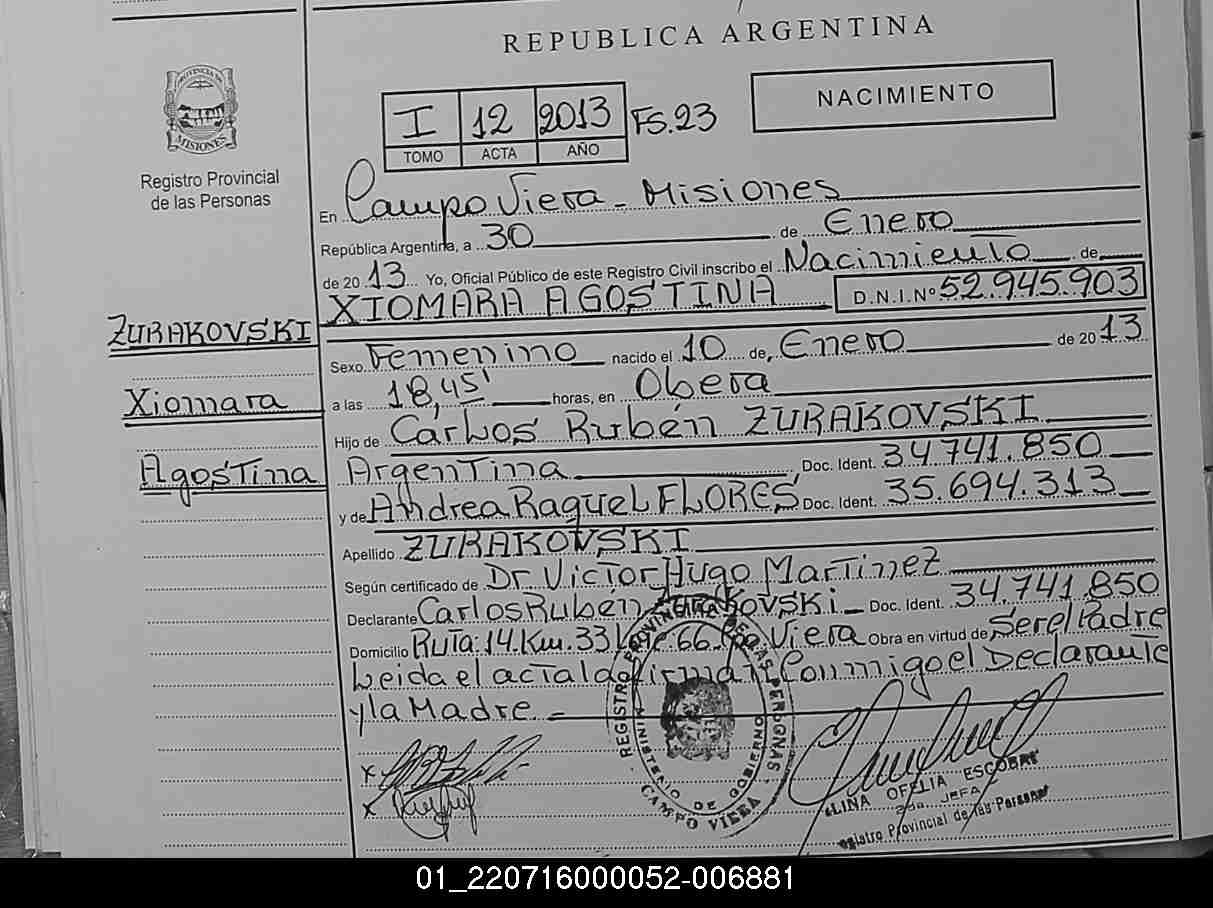 REPUBLICA ARGENTINA
PROVINCIA DE
MISIONES
Registro Provincial
de las Personas
I 12 2013 FS.23
TOMO ACTA AÑO
NACIMIENTO
En Campo Viera - Misiones
República Argentina, a 30 de Enero
de 2013 Yo, Oficial Público de este Registro Civil inscribo el Nacimiento de
XIOMARA AGOSTINA D.N.I.Nº 52.945.903
ZURAKOVSKI
Sexo Femenino nacido el 10 de, Enero de 2013
Xiomara
a las 18,45' horas, en Obera
Hijo de Carlos Rubén ZURAKOVSKI
Agostina
Argentina Doc. Ident. 34741.850
y de Andrea Raquel FLORES Doc. Ident. 35.694.313
Apellido ZURAKOVSKI
Según certificado de Dr Victor Hugo Martinez
Declarante Carlos Rubén Zurakovski - Doc. Ident. 34.741.850
Domicilio Ruta.14.Km.33 66 Viera Obra en virtud de Ser el Padre
Leida el acta la firman Conmigo el Declarante
y la Madre. -
x
x
REGISTRO PROVINCIAL DE LAS PERSONAS
MINISTERIO DE GOBIERNO
CAMPO VIERA
OFELIA ESCOBAR
JEFA
Registro Provincial de las Personas
01_220716000052-006881